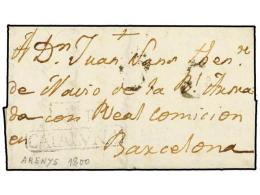 A Dn. Juan Sans Ten.te
de Navio de la Rl. Arma
da con Real comicion
en Barcelona
ARENYS 1800